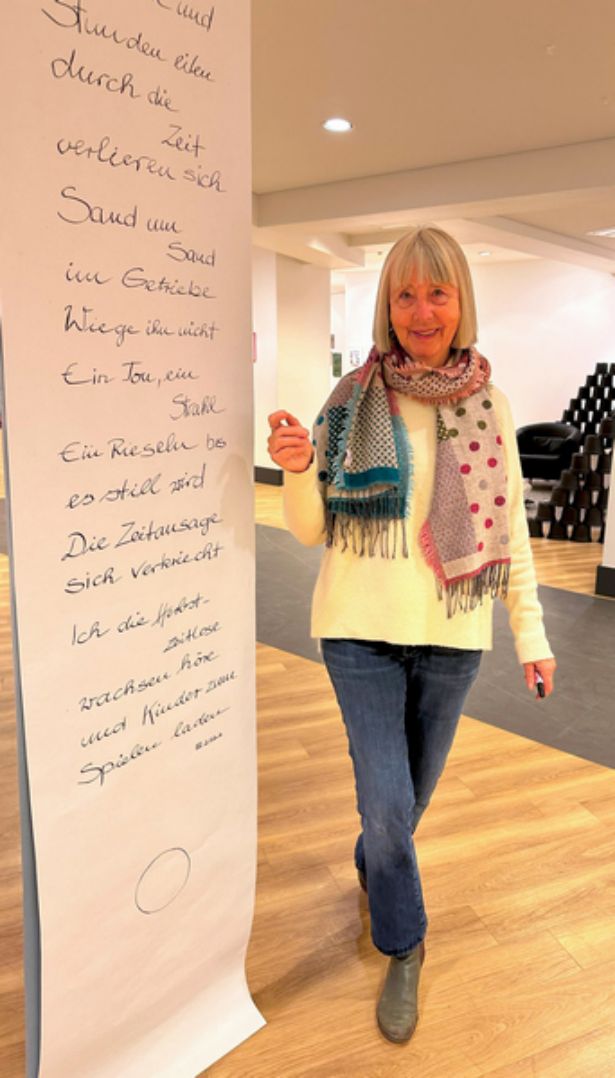 und
Stunden eilen
durch die
Zeit
verlieren sich
Sand um
Sand
im Getriebe
Wiege ihn nicht
Ein Ton, ein
Strahl
Ein Rieseln bis
es still wird
Die Zeitansage
sich verkriecht
Ich die Herbst-
zeitlose
wachsen höre
und Kinder zum
Spielen laden